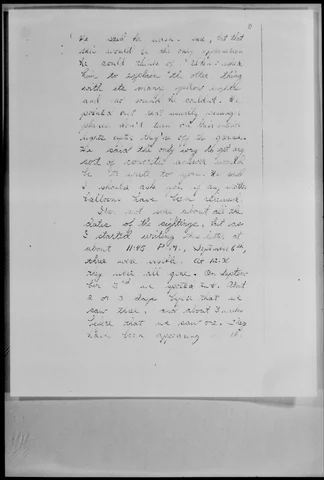 He said he wasn't sure, but that
this would be the only explanation
he could think of. I then asked
him to explain the other thing
with its many yellow lights
and no sound he couldn't. He
pointed out that usually passenger
planes don't turn on their
lights until they're
He said the only way to get any
sort of concrete answer would
be to write to you. He said
I should ask you if any weather
balloons have been released.
I'm not sure about all the
dates of the sightings, but as
I started writing this letter at
about 11:45 P.M., September 6th,
three were visible. At 12:
they were all gone. On Septem-
ber 3rd we spotted two. About
2 or 3 days before that we
saw three, and about 3 weeks
before that we saw one. They
have been appearing